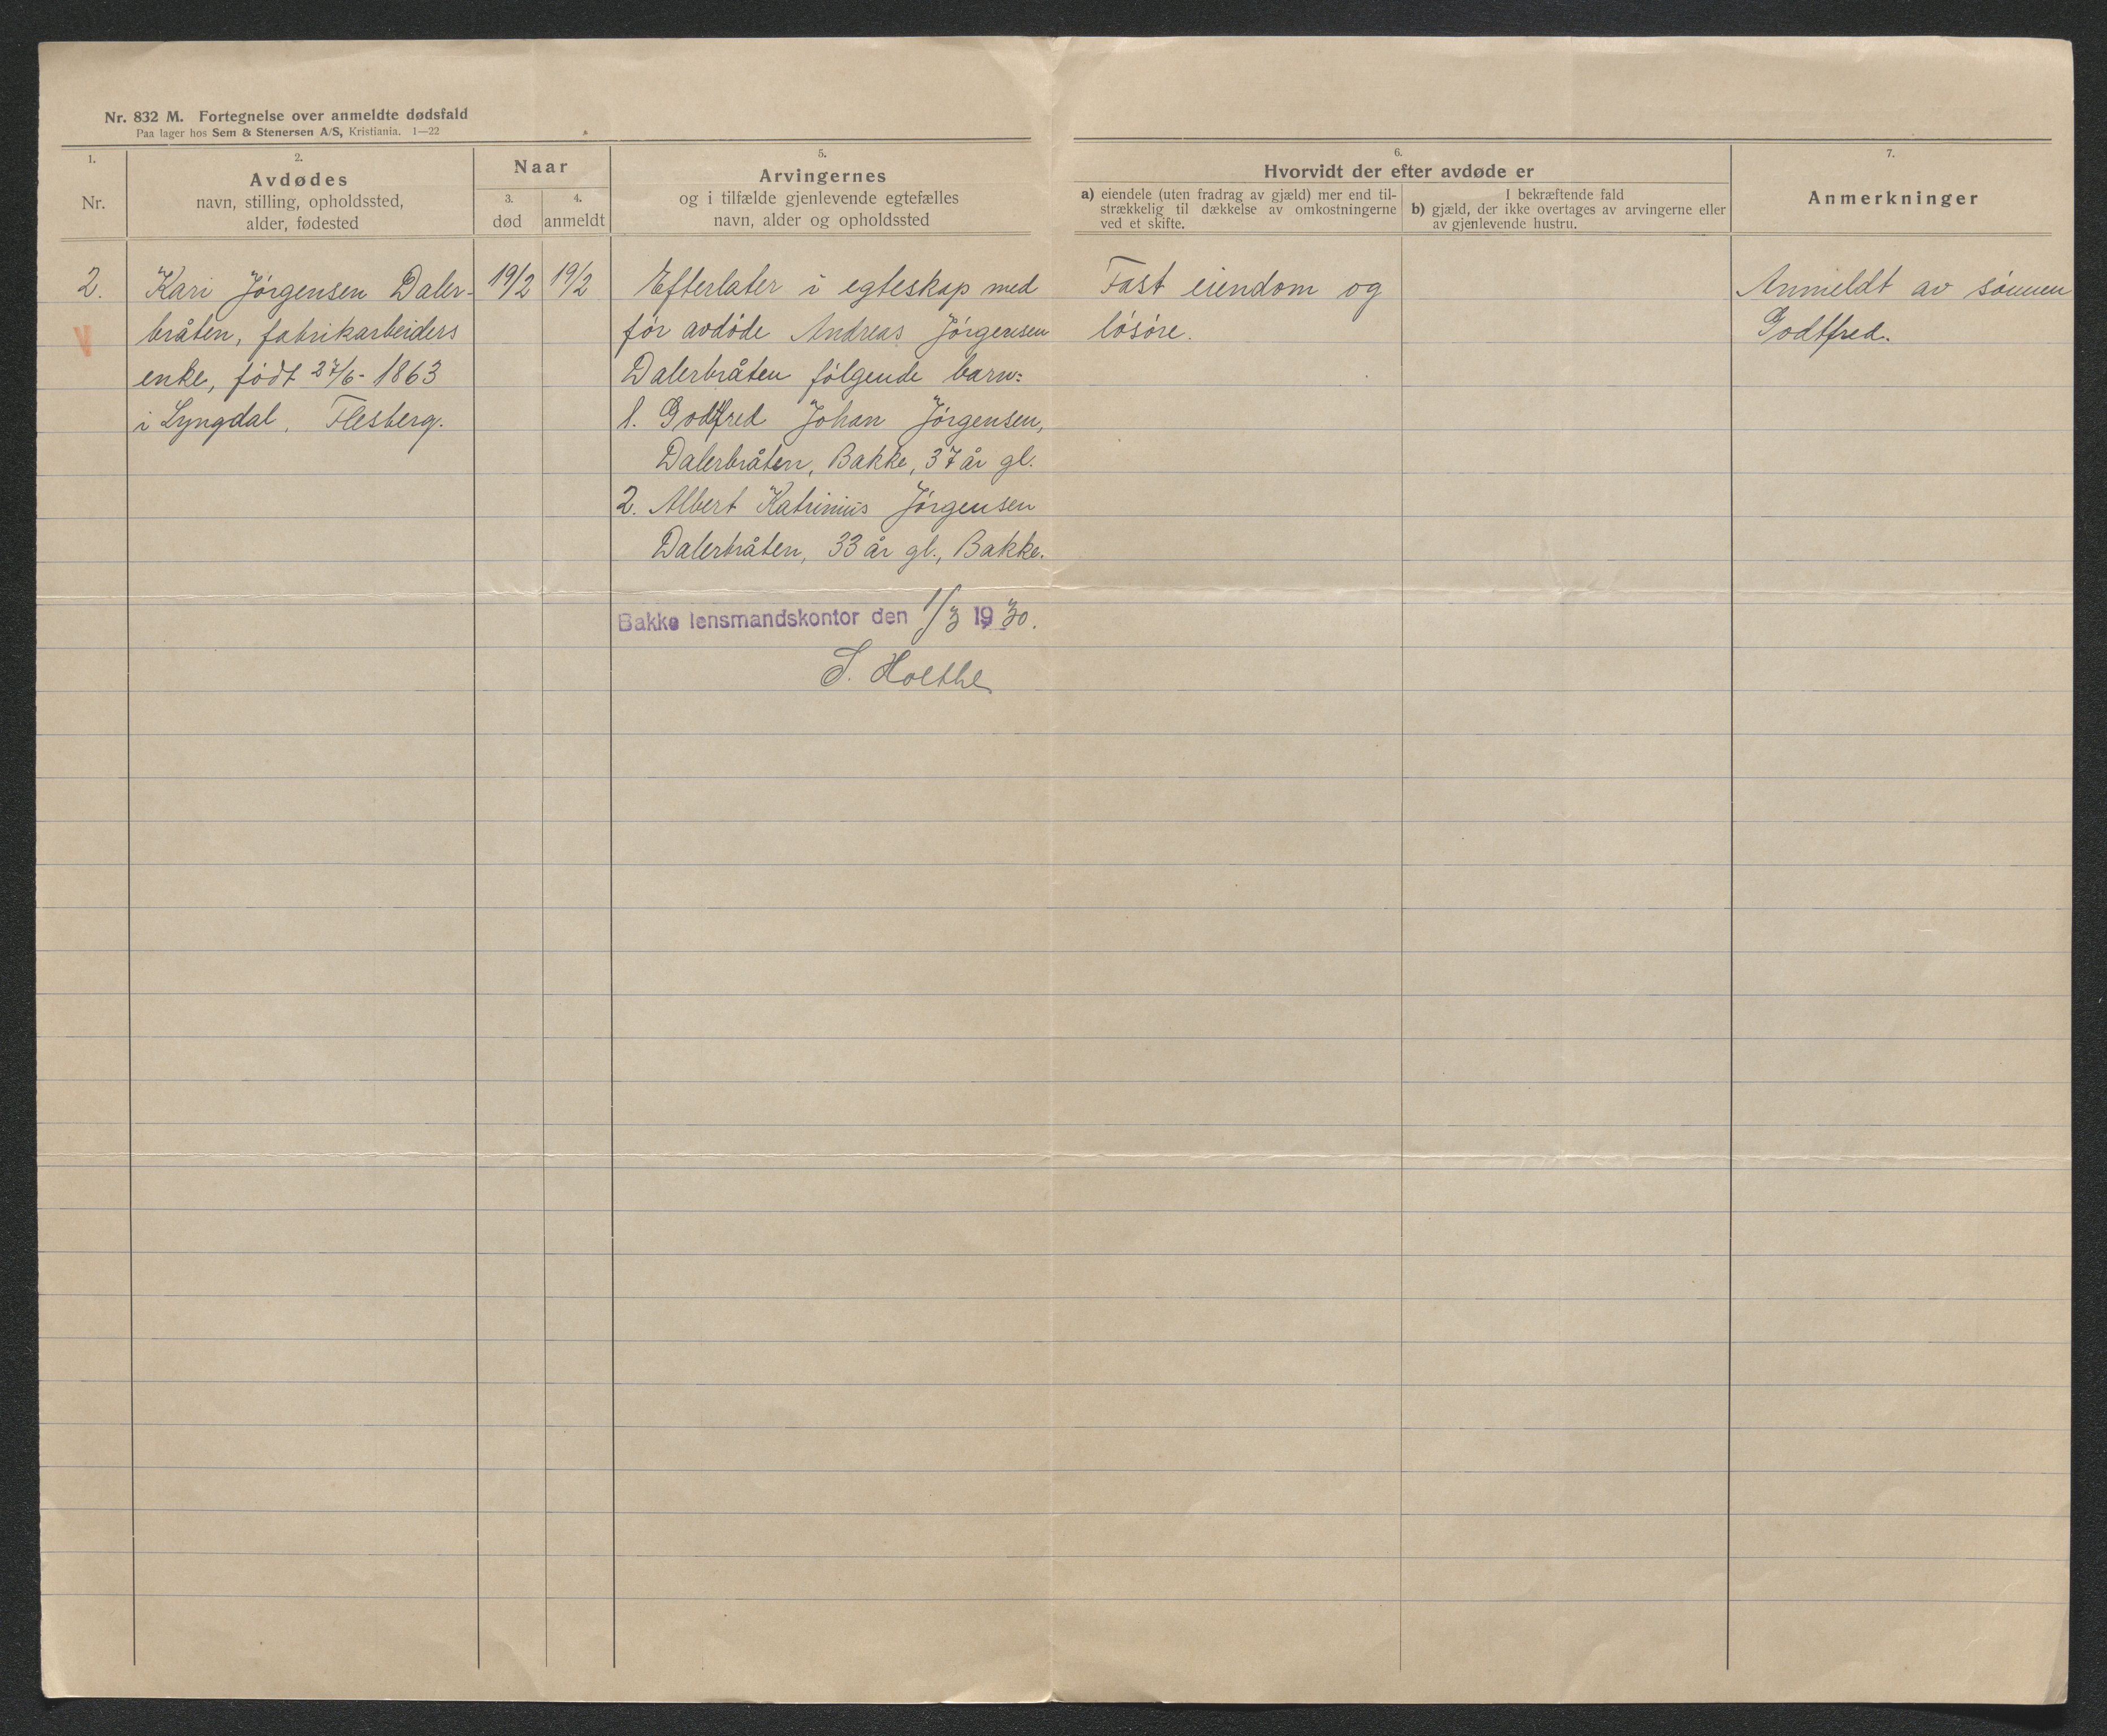 Nr. 832 M. Fortegnelse over anmeldte dødsfald
Paa lager hos Sem & Stenersen A/S, Kristiania. 1—22
1.
Nr.
2.
Avdødes
navn, stilling, opholdssted,
alder, fødested
Naar
3.
død
4.
anmeldt
5.
Arvingernes
og i tilfælde gjenlevende egtefælles
navn, alder og opholdssted
6.
Hvorvidt der efter avdøde er
a) eiendele (uten fradrag av gjæld) mer end til-
strækkelig til dækkelse av omkostningerne
ved et skifte.
I bekræftende fald
b) gjæld, der ikke overtages av arvingerne eller
av gjenlevende hustru.
7.
Anmerkninger
2.
V
Kari Jørgensen Daler-
bråten, fabrikarbeiders
enke, født 27/6- 1863
i Lyngdal, Flesberg.
19/2
19/2
Efterlater i egteskap med
før avdøde Andreas Jørgensen
Dalerbråten følgende barn:
1. Godtfred Johan Jørgensen,
Dalerbråten, Bakke, 37 år gl.
2. Albert Katrinius Jørgensen
Dalerbråten, 33 år gl., Bakke.
Bakke lensmandskontor den 1/3 1930.
S. Holthe
Fast eiendom og
løsøre.
Anmeldt av sønnen
Godtfred.